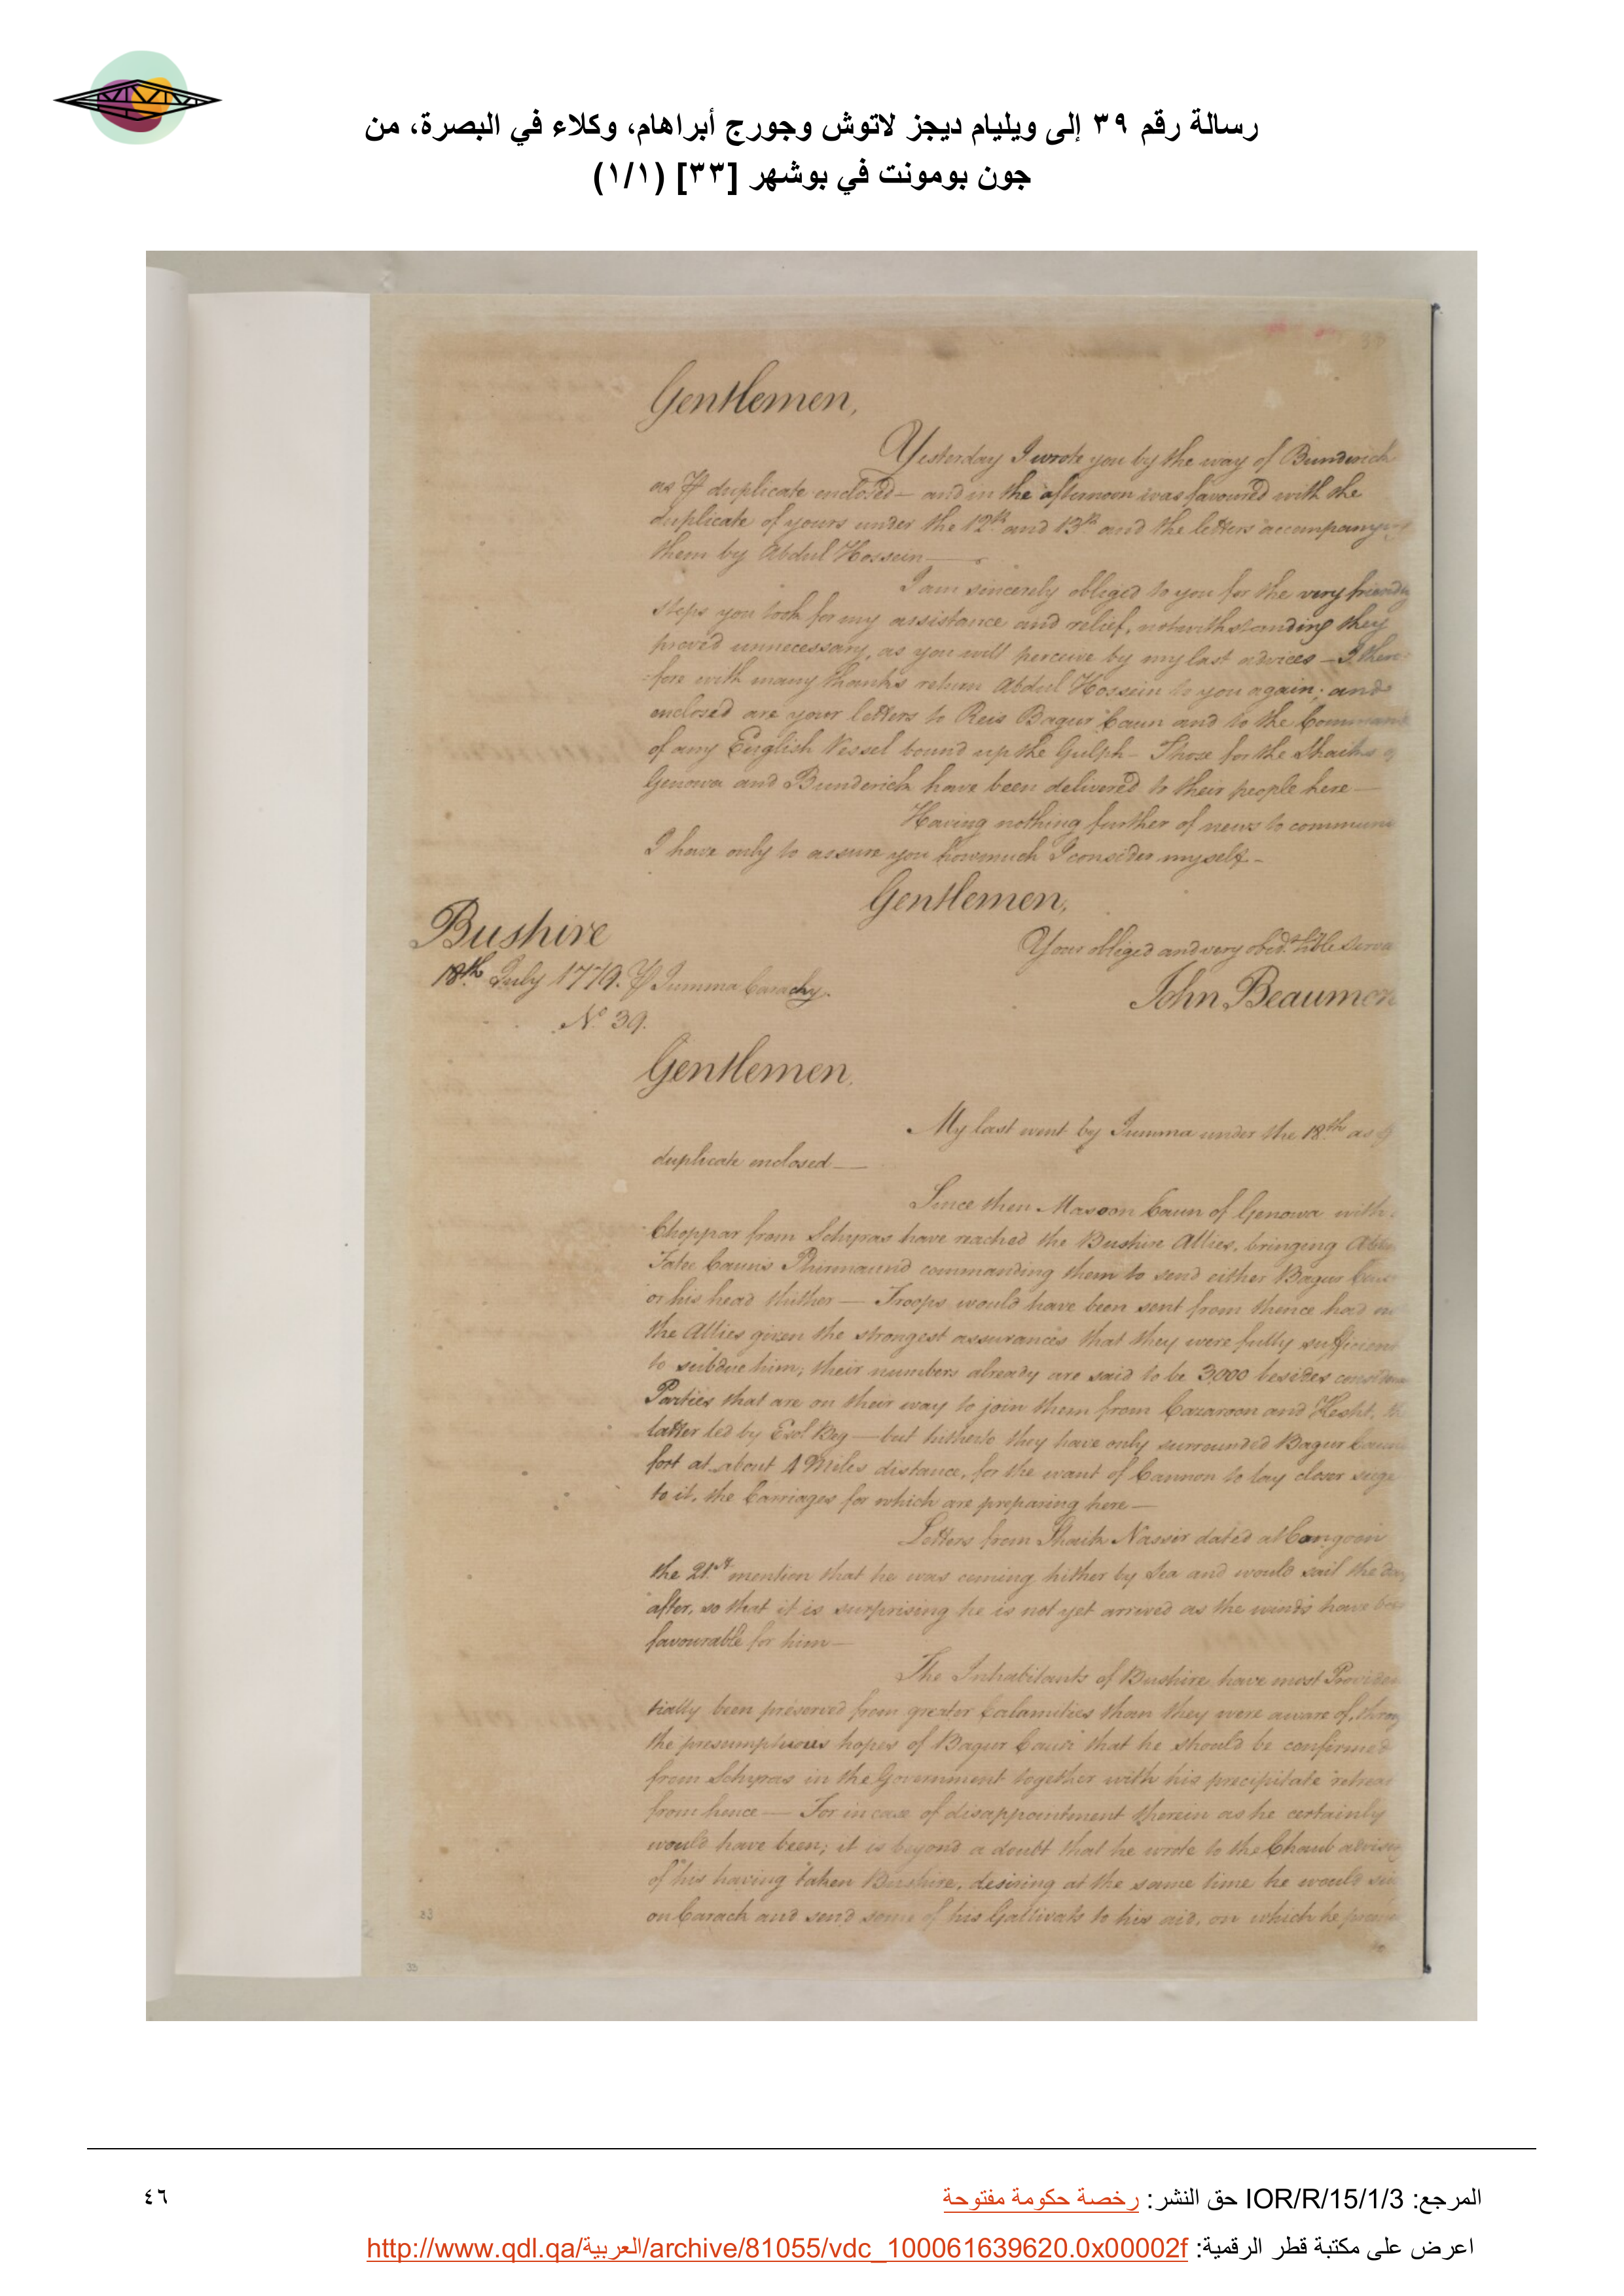 رسالة رقم ٣٩ إلى ويليام ديجز لاتوش وجورج أبراهام، وكلاء في البصرة، من
جون بومونت في بوشهر [٣٣] (١/١)
Gentlemen,
Yesterday I wrote you by the way of Bunderick
as ⅌ duplicate enclosed — and in the afternoon was favoured with the
duplicate of yours under the 12th and 13th and the letters accompany
them by Abdul Hossein —
I am sincerely obliged to you for the very friendly
steps you took for my assistance and relief, notwithstanding they
proved unnecessary, as you will perceive by my last advices — I there:
:fore with many thanks return Abdul Hossein to you again; and
enclosed are your letters to Reis Bagur Caun and to the Command
of any English Vessel bound up the Gulph — Those for the Shaiks of
Genowa and Bunderick have been delivered to their people here —
Having nothing further of news to commun
I have only to assure you how much I consider myself —
Gentlemen,
Your obliged and very obed.t h'ble serva
John Beaumon
Bushire
18th July 1779. ⅌ Jumma Carachy.
No. 39.
Gentlemen.
My last went by Jumma under the 18th as ⅌
duplicate enclosed —
Since then Masoon Caun of Genowa with
Choppar from Schyras have reached the Bushire Allies, bringing
Fateh Caun's Phirmaund commanding them to send either Bagur Caun
or his head thither — Troops would have been sent from thence had
the Allies given the strongest assurances that they were fully sufficient
to subdue him; their numbers already are said to be 3,000 besides
Parties that are on their way to join them from Cazaroon and Hesht, the
latter led by Beg — but hitherto they have only surrounded Bagur Caun's
fort at about 4 Miles distance, for the want of Cannon to lay closer siege
to it, the Carriages for which are preparing here —
Letters from Shaik Nassir dated at Congoon
the 21st mention that he was coming hither by Sea and would sail the day
after, so that it is surprising he is not yet arrived as the winds have been
favourable for him —
The Inhabitants of Bushire have most Providen
tially been preserved from greater Calamities than they were aware of, throu
the presumptuous hopes of Bagur Caun that he should be confirmed
from Schyras in the Government together with his precipitate retreat
from hence — For in case of disappointment therein as he certainly
would have been; it is beyond a doubt that he wrote to the Chaub advising
of his having taken Bushire, desiring at the same time he would
on Carack and send some of his Gallivats to his aid, on which he
33
33
المرجع: IOR/R/15/1/3 حق النشر: رخصة حكومة مفتوحة
٤٦
اعرض على مكتبة قطر الرقمية: http://www.qdl.qa/العربية/archive/81055/vdc_100061639620.0x00002f